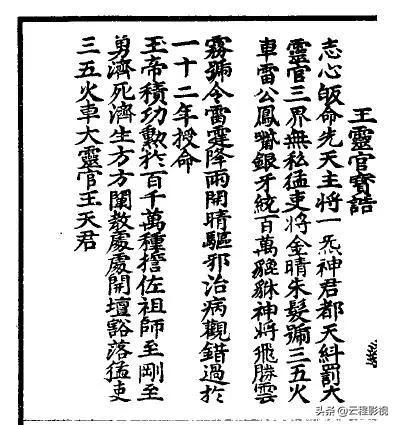 王靈官寶誥
志心皈命先天主將一炁神君都天糾罰大
靈官三界無私猛吏將金睛朱髮號三五火
車雷公鳳嘴銀牙統百萬貔貅神將飛勝雲
霧號令雷霆降雨開晴驅邪治病觀錯過於
一十二年授命
玉帝積功勳於百千萬種誓佐祖師至剛至
勇濟死濟生方方闡教處處開壇豁落猛吏
三五火車大靈官王天君
头条@云程影视